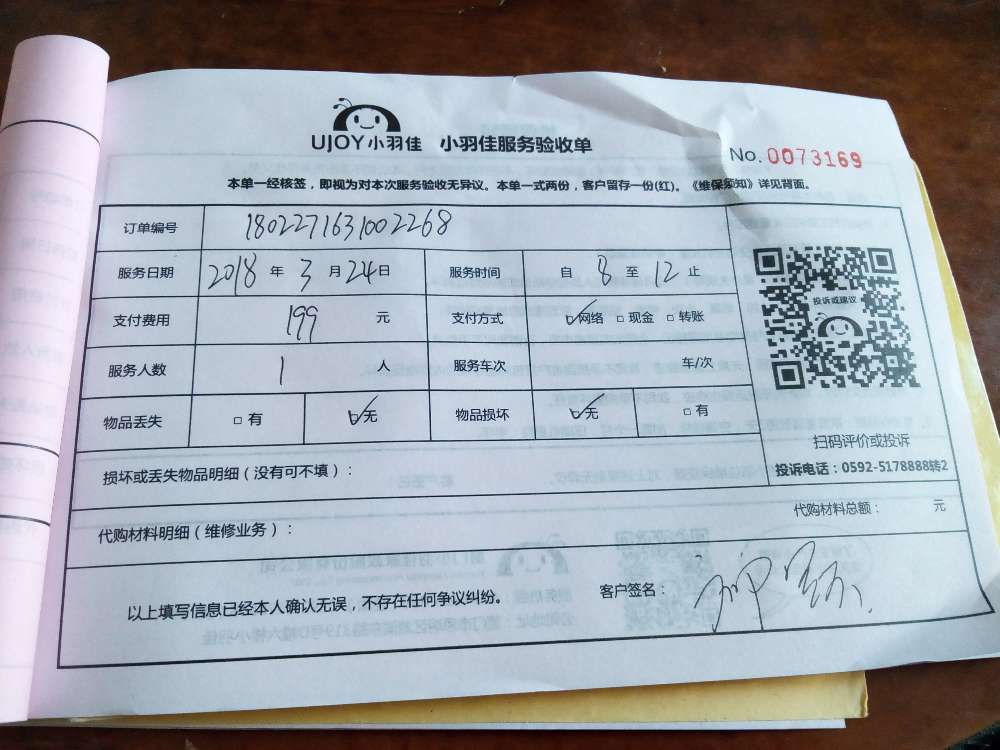 UJOY小羽佳 小羽佳服务验收单
No. 0073169
本单一经核签，即视为对本次服务验收无异议。本单一式两份，客户留存一份(红)。《维保须知》详见背面。
订单编号 1802271631002268
服务日期 2018 年 3 月 24 日 服务时间 自 8 至 12 止
支付费用 199 元 支付方式 ☑网络 □现金 □转账
服务人数 1 人 服务车次 车/次
物品丢失 □有 ☑无 物品损坏 ☑无 □有
投诉或建议
扫码评价或投诉
投诉电话：0592-5178888转2
损坏或丢失物品明细（没有可不填）：
代购材料明细（维修业务）： 代购材料总额： 元
以上填写信息已经本人确认无误，不存在任何争议纠纷。 客户签名：